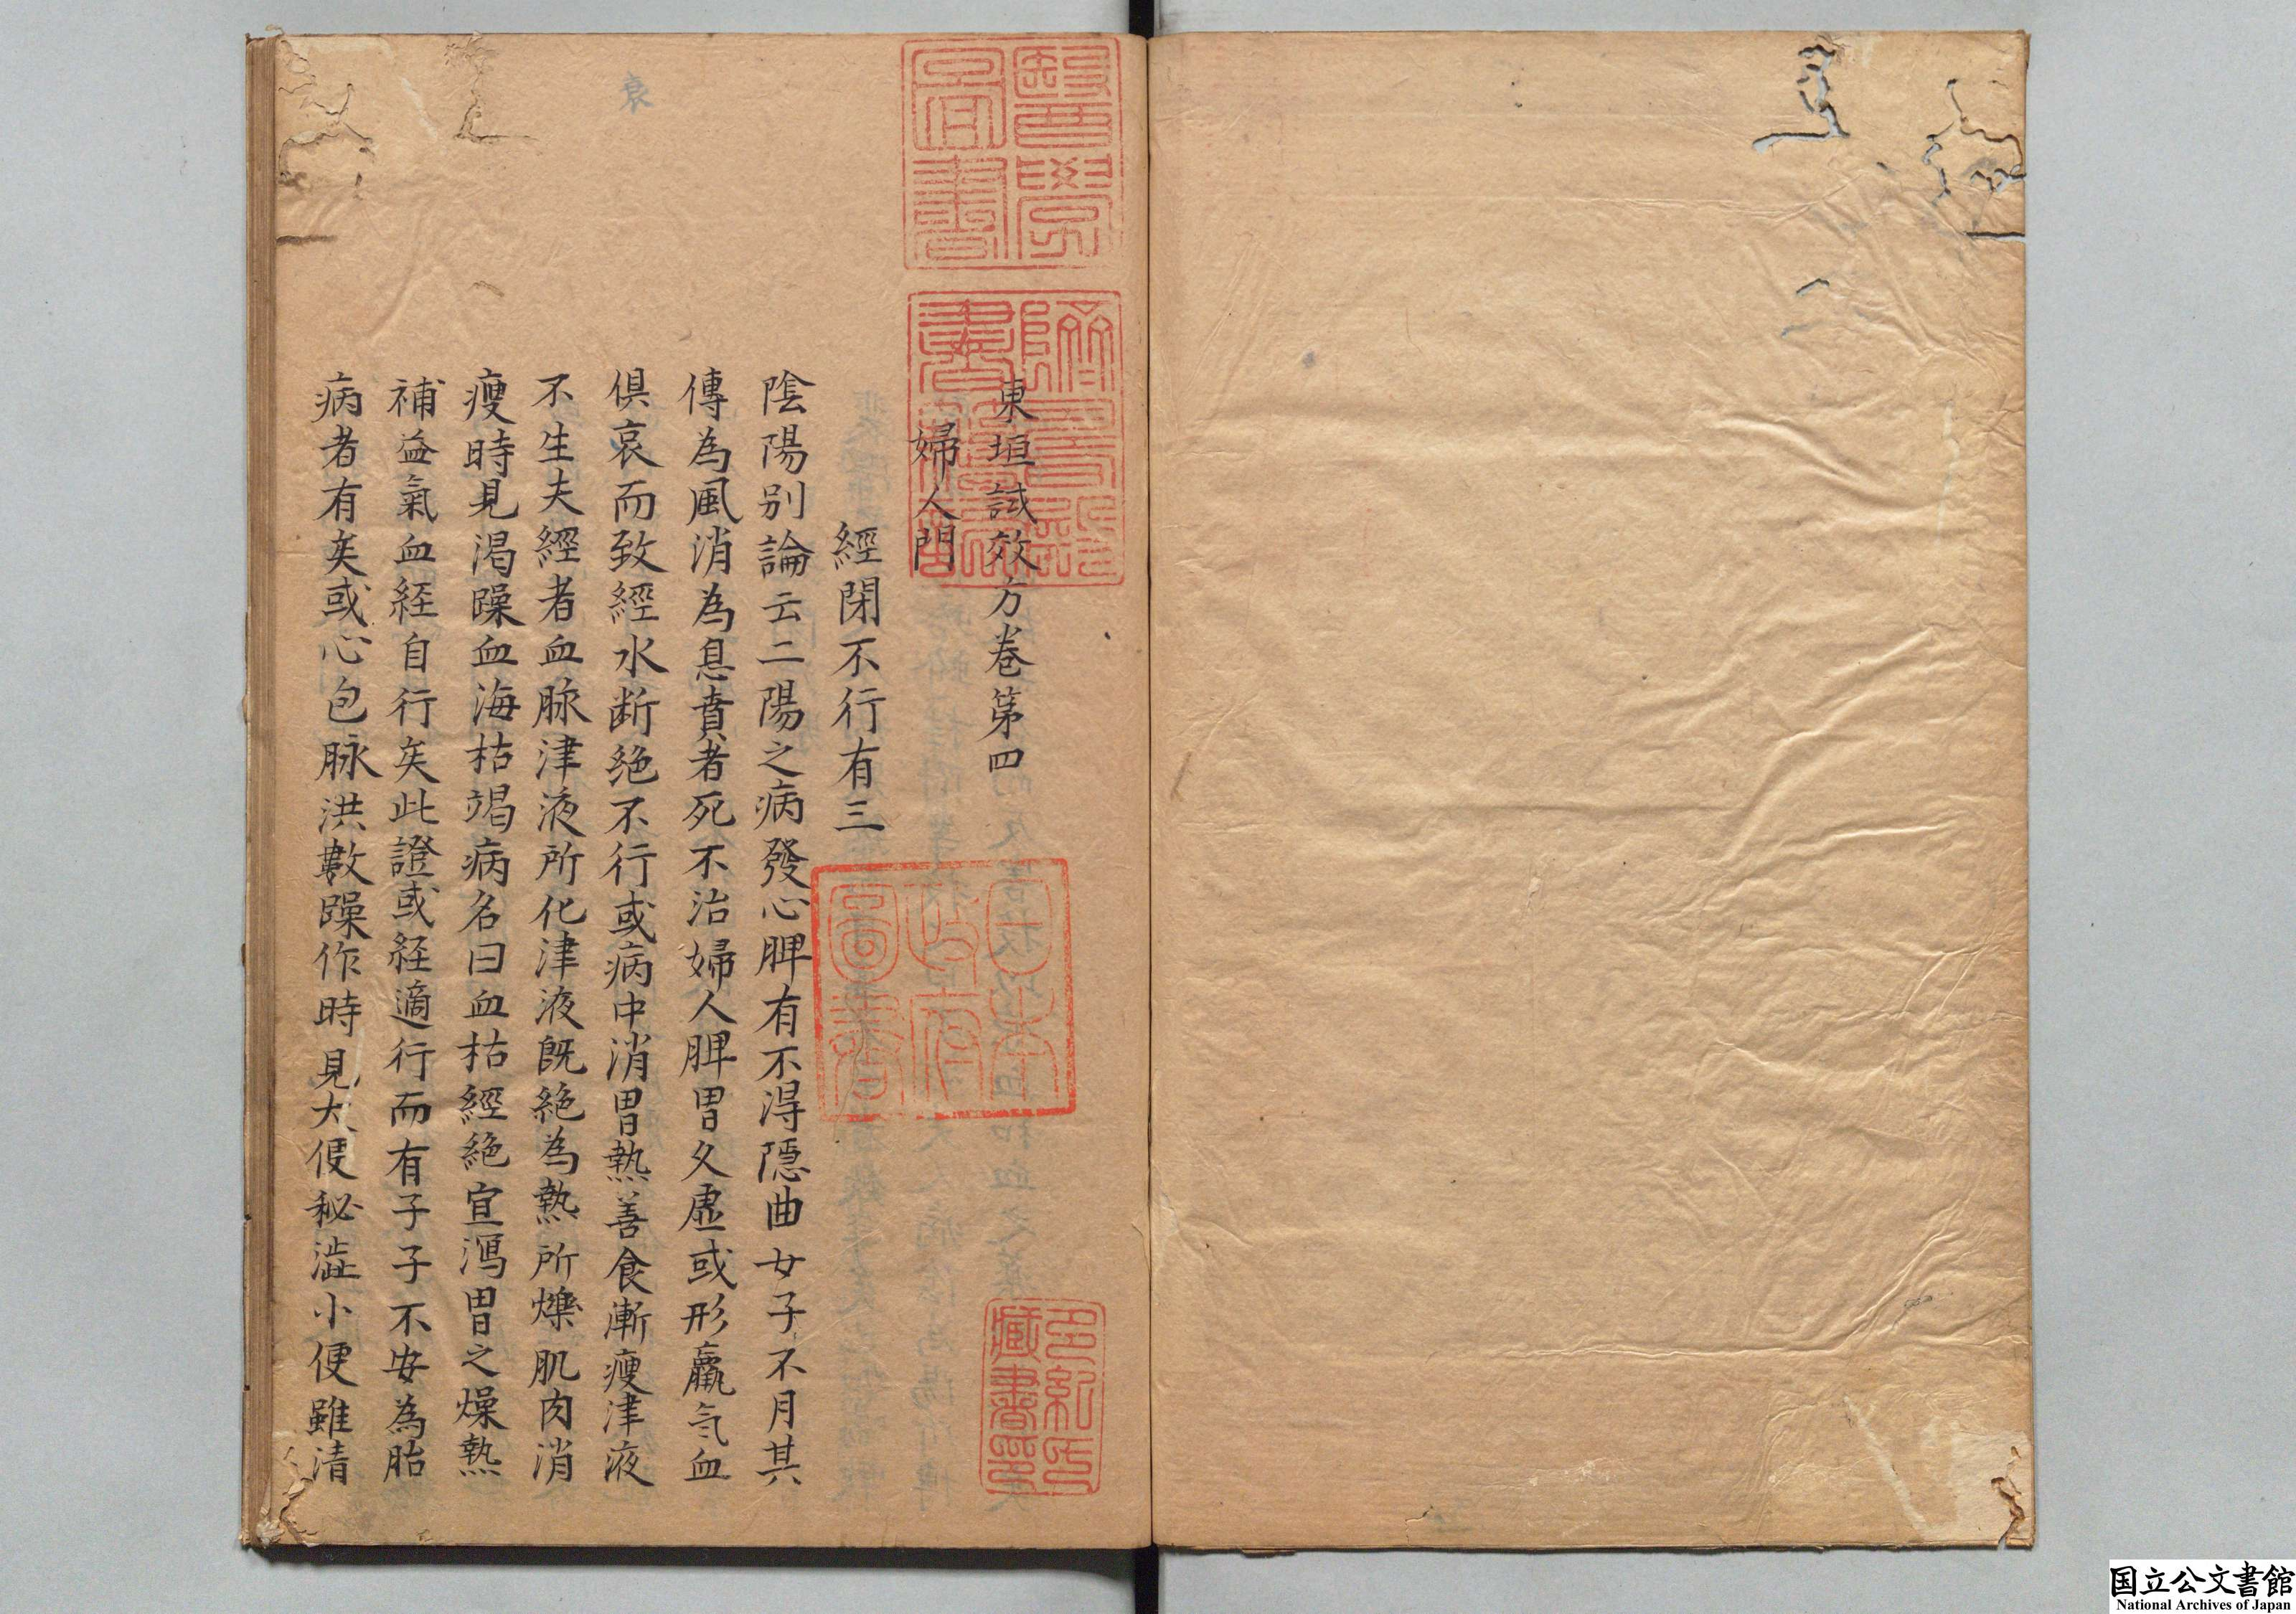 東垣試效方卷第四
婦人門
經閉不行有三
陰陽別論云二陽之病發心脾有不得隱曲女子不月其
傳為風消為息賁者死不治婦人脾胃久虛或形羸氣血
俱哀而致經水断絶不行或病中消胃熱善食漸瘦津液
不生夫經者血脉津液所化津液既絶為熱所爍肌肉消
瘦時見渴躁血海枯竭病名曰血枯經絶宜瀉胃之燥熱
補益氣血経自行矣此證或経適行而有子子不安為胎
病者有矣或心包脉洪數躁作時見大便秘澁小便雖清
衰
醫學圖書
躋壽殿書籍記
日本政府圖書
多紀氏藏書印
国立公文書館
National Archives of Japan